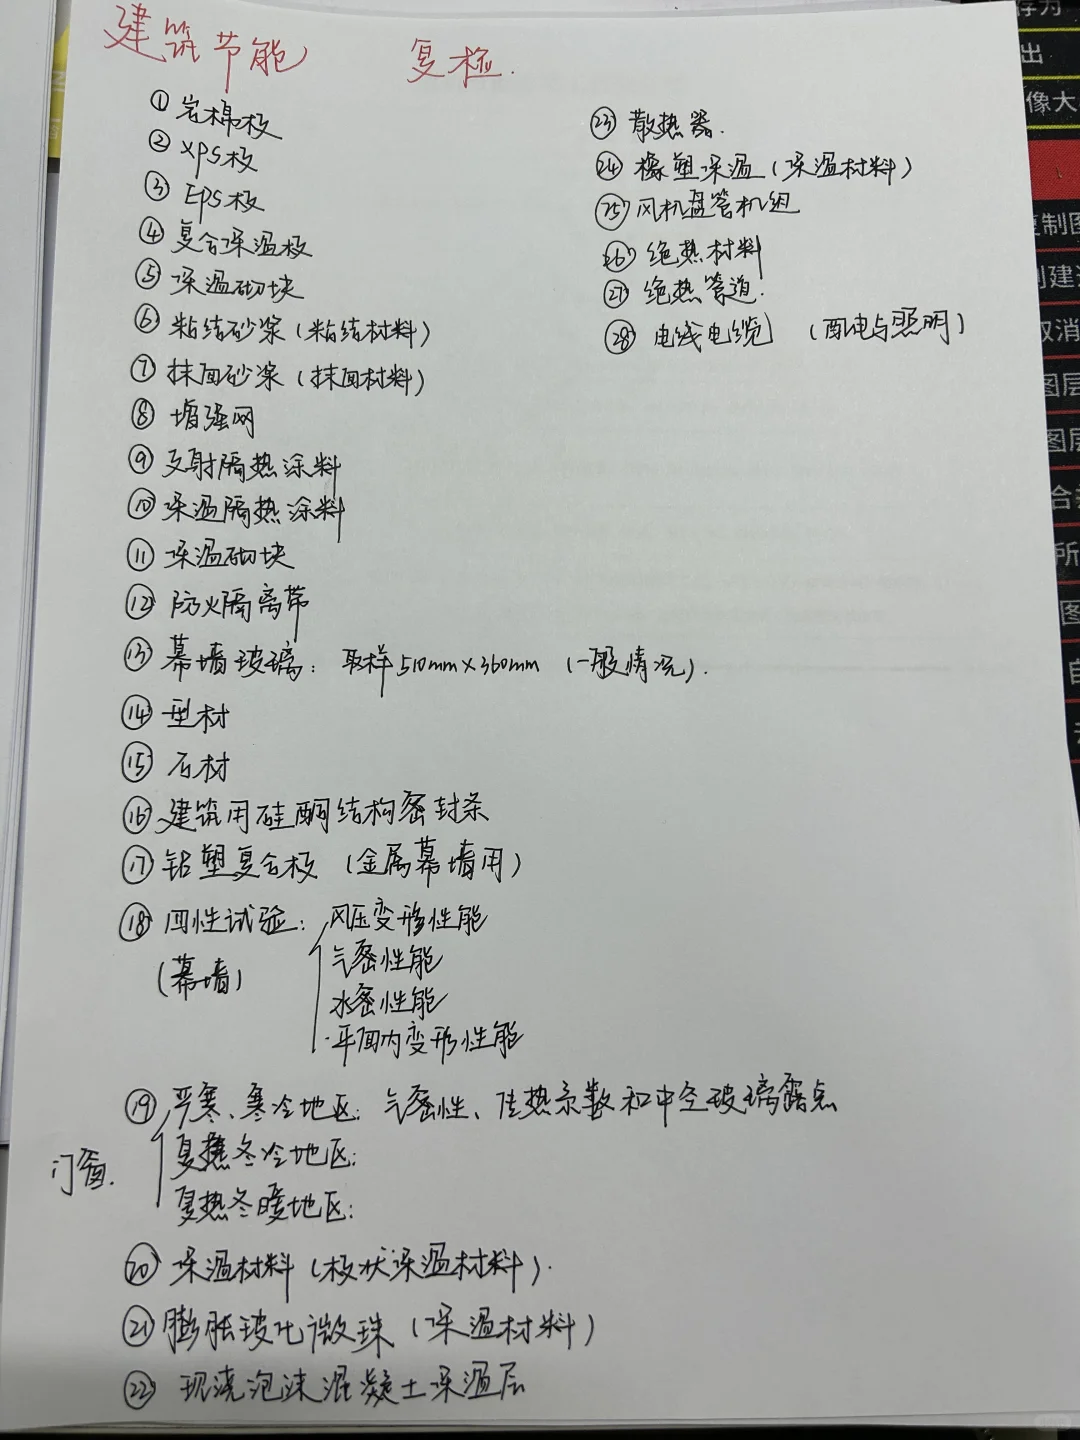 建筑节能 复检.
① 岩棉板
② XPS板
③ EPS板
④ 复合保温板
⑤ 保温砌块
⑥ 粘结砂浆(粘结材料)
⑦ 抹面砂浆(抹面材料)
⑧ 增强网
⑨ 反射隔热涂料
⑩ 保温隔热涂料
⑪ 保温砌块
⑫ 防火隔离带
⑬ 幕墙玻璃: 取样510mm×360mm (一般情况).
⑭ 型材
⑮ 石材
⑯ 建筑用硅酮结构密封条
⑰ 铝塑复合板 (金属幕墙用)
⑱ 四性试验: 风压变形性能
(幕墙) 气密性能
水密性能
平面内变形性能
⑲ 严寒、寒冷地区: 气密性、传热系数和中空玻璃露点
门窗. 夏热冬冷地区:
夏热冬暖地区:
⑳ 保温材料(板状保温材料).
㉑ 膨胀玻化微珠(保温材料)
㉒ 现浇泡沫混凝土保温层
㉓ 散热器.
㉔ 橡塑保温(保温材料)
㉕ 风机盘管机组
㉖ 绝热材料
㉗ 绝热管道.
㉘ 电线电缆 (配电与照明)
存为
出
像大
复制图
制建
取消
图层
图层
合并
所
图
自